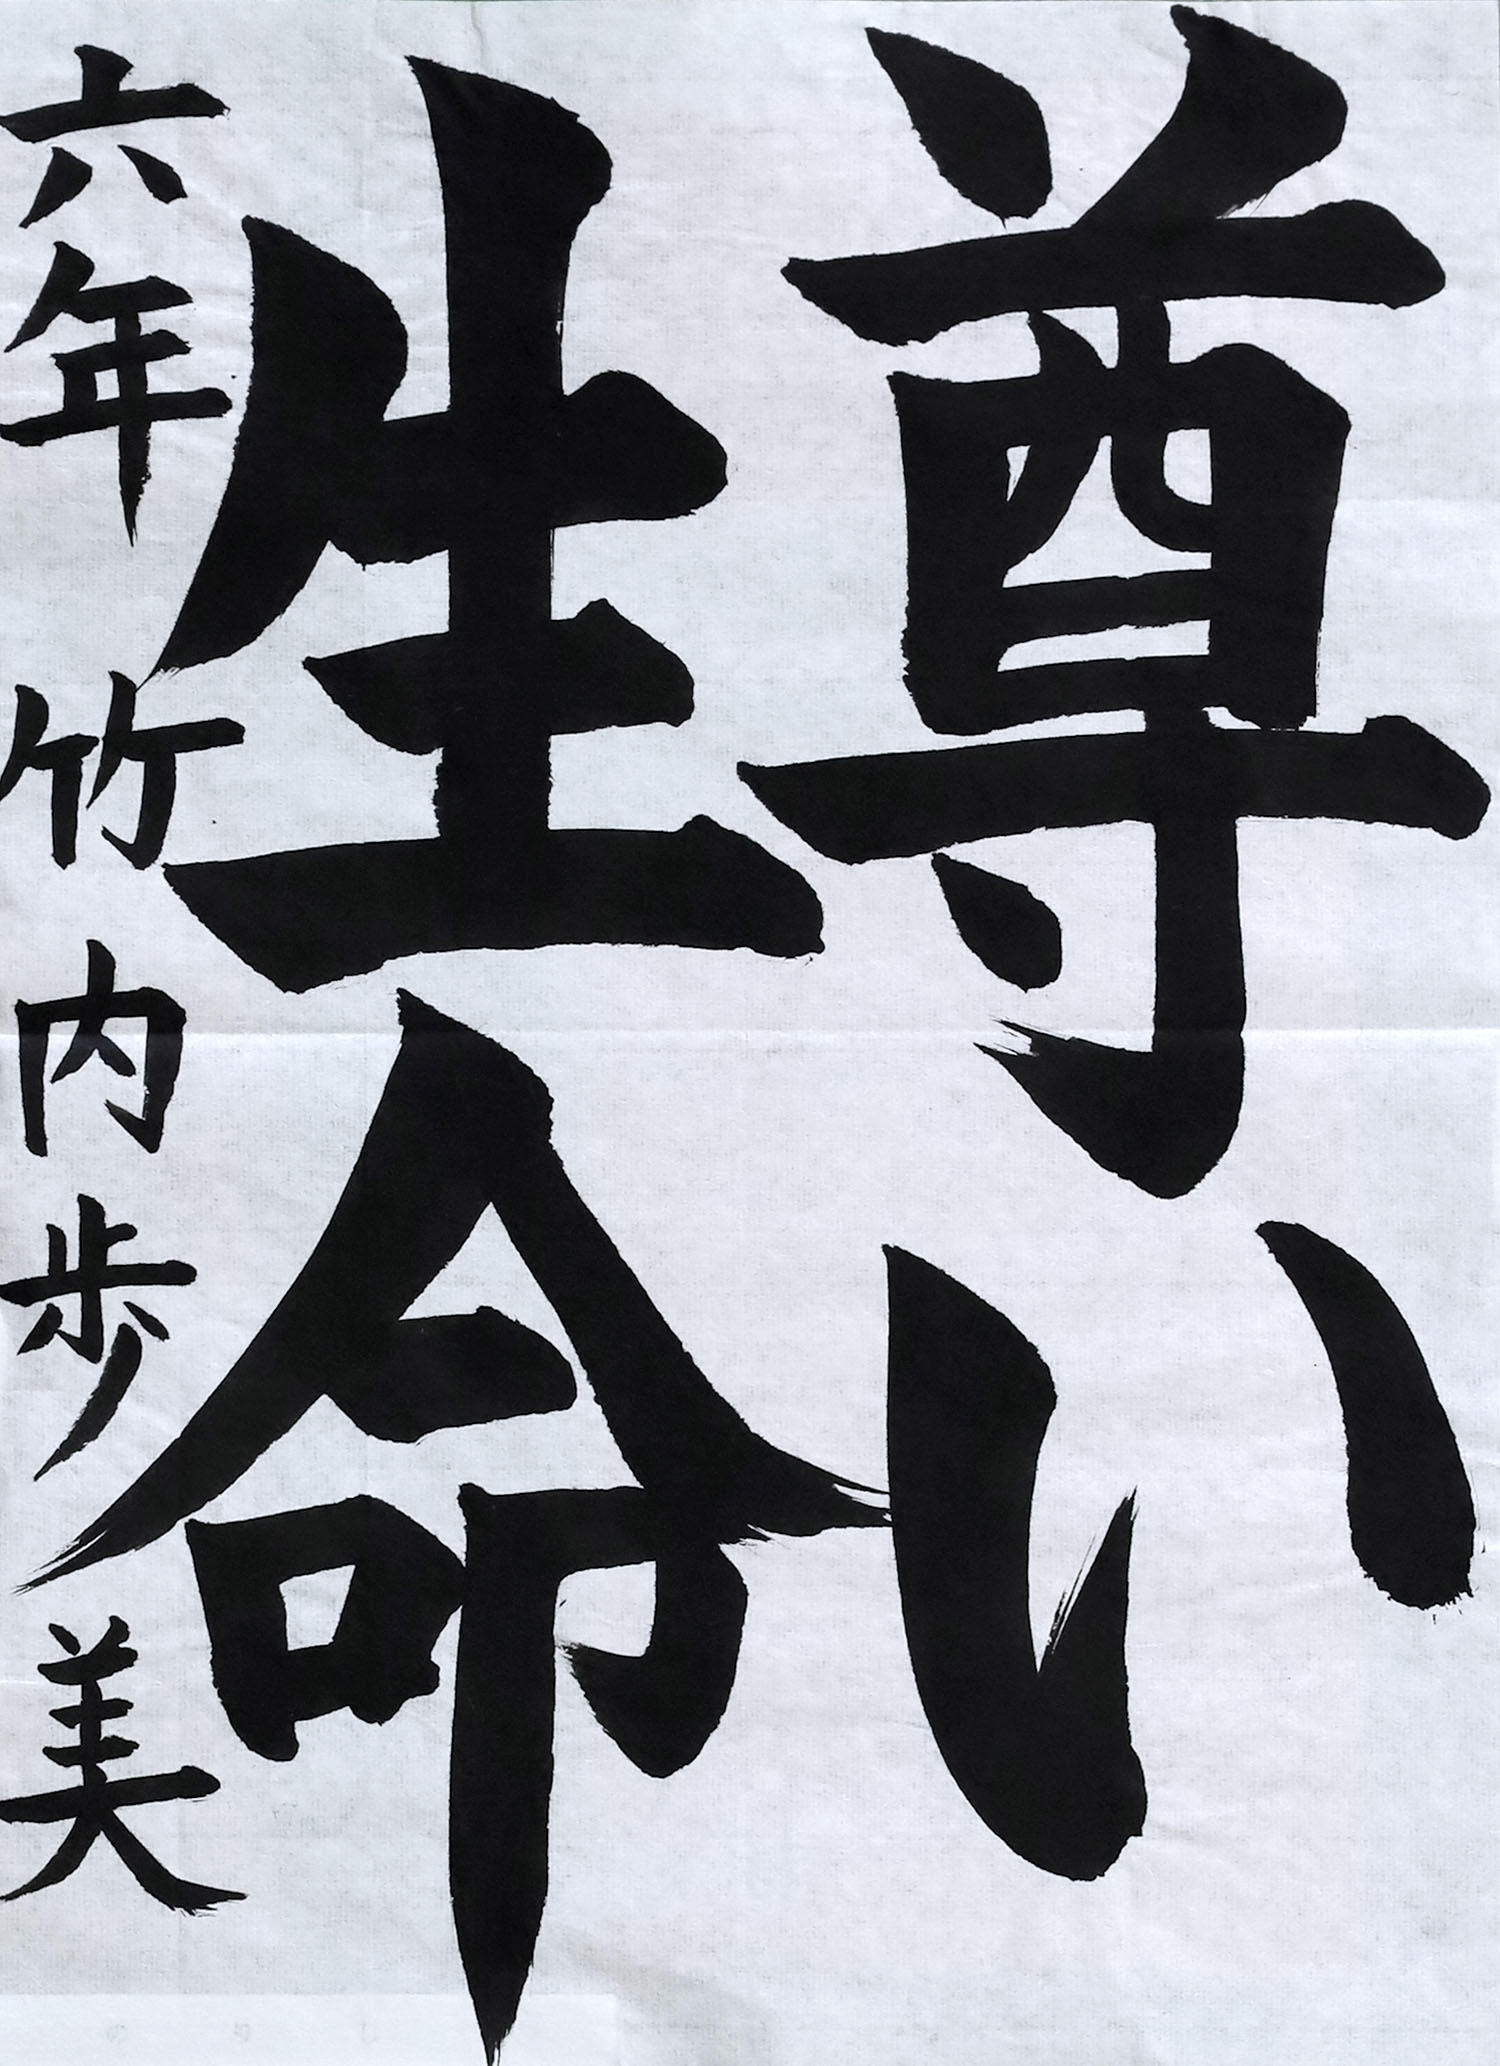 尊い
生命
六年 竹内歩美